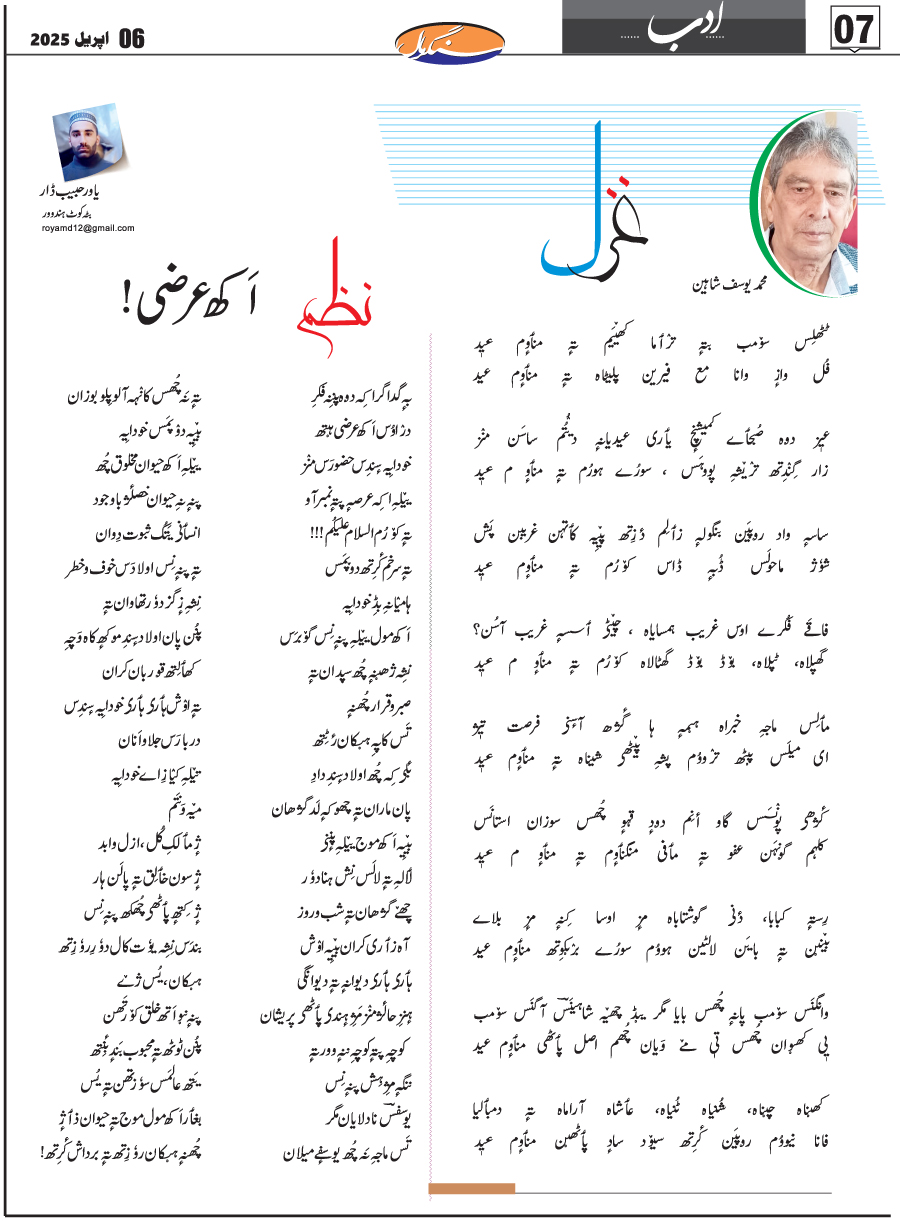 07
ادب
سنگرمال
06 اپریل 2025
غزل
محمد یوسف شاہین
ٹٹھلِس سۆمب بتہٕ ترٛاما کھیٚیَم تہٕ منٲوم عید
فُل وازِ وانا مع فیرین پلیٹاہ تہٕ منٲوم عید
عیزِ دوہ صُبحٲے کمیشنچ یٲری عیدیانہٕ دیتُٛم ساسَن منٛز
زار گِنٛدِتھ ترٛیشہِ پووہَس ، سورُے ہورُم تہٕ منٲو م عید
ساسہٕ واد روپَین بنگولہٕ زٲلِم وُزتھ پیٚیہِ کٲتہن غریٖبن پَش
شوٗژ ماحولَس ڈُبہٕ ڈاس کوٚرُم تہٕ منٲوم عید
فاقے فٔکرے اوس غریب ہمسایاہ ، چیٚنژ ٲسسہٕ غریب آسُن؟
گھپلاہ، ٹھپلاہ، بوٚڈ بوٚڈ گھٹالاہ کوٚرُم تہٕ منٲو م عید
مٲلِس ماجہِ خبراہ ہیمہٕ ہا گٔژھ ٲسنۍ فرصت تیژ
ای میلَس پیٚٹھ ترٛووُم پشہِ پیٚٹھۍ شیناہ تہٕ منٲوم عید
گٔرۍ یوٚنٛسَس گاو أنم دودِ قہوٕ چھُس سوزان استانَس
کلہم گوٚنہَن عفو تہٕ مٲفی منگنٲوم تہٕ منٲو م عید
رِستہٕ کبابا، دٔنی گوشتاباہ مزٕ اوسا کِنہٕ مزٕ بلاے
بیٚنین تہٕ باین لالٹین ہووُم سورُے ہژٕپکوتھ منٲوم عید
وانگنَس سۆمب پانہٕ چھُس بایا مگر ییٚڈ چھیہٕ شاہینَسؔ آگنَس سۆمب
پی کھیوان چھُس تی مےٚ وَیان چھُم اصل پٲٹھۍ منٲوم عید
کھیناہ چیناہ، شُنیاہ نُنیاہ، عٲشاہ آراماہ تہٕ دمبٲلیا
فانا نیووُم روپَین کٔرتھ سیوٚد سادِ پٲٹھین منٲوم عید
یاور حبیب ڈار
بٹہٕ کوٹ ہندوور
royamd12@gmail.com
نظم
اَکھ عرضی!
بہٕ گداگر اکہِ دوہ پننہِ فکرِ
درٛاؤس اَکھ عرضی ہیٚتھ
خودایہٕ سٕندِس حضورَس منٛز
ییٚلہِ اکہِ عرصہٕ پتہٕ نمبر آو
تہٕ کوٚرُم السلام علیکُم!!!
تہٕ سر خم کٔرِتھ دوپمَس
ہا میانہِ بڈِ خودایہٕ
اَکھ مول ییٚلہِ پننہِ نِس گوبرَس
نِشہِ ژھینہٕ چھُ سپدان تہٕ
صبر و قرار چھُنہٕ
تَس کانہہ ہیٚکان رٔٹِتھ
تِکیازِ چھُ اولاد سٕندِ دادِ
پان ماران تہٕ چھوکہٕ لَد گژھان
بیٚیہِ اَکھ موج ییٚلہِ پننِ
لالہٕ تہٕ لالَس نِش ہنا دوٗر
چھیٚنہِ گژھان تہٕ شب و روز
آہ زٲری کران بیٚیہِ اوٚش
ہٲرۍ ہٲرۍ دیوانہٕ تہٕ دیوانگی
ہنزِ حالژ منٛز مٔژ ہنٛدۍ پٲٹھۍ پریشان
کوچہِ پتہٕ کوچہِ ننہٕ وور تہٕ
ننگہٕ موٚیہِش پننہِ نِس
یوسفسؔ نادلایان مگر
تَس ماجہِ نہٕ چھُ یوسفے میلان
تہٕ نہٕ چھُس کانہہ آلو پلو بوزان
بیٚیہِ دوٚپمَس خودایہٕ
ییٚلہِ اَکھ حیوان مخلوق چھُ
پننہِ نہِ حیوان خصلژ باوجود
انسٲنی یَتُک ثبوت دِوان
تہٕ پننہِ نِس اولادَس خوف و خطر
نِشہِ زِگِز دوٗر تھاوان تہٕ
پنُن پان اولاد سٕندِ موکھٕ کاہ وَچہِ
کھٲلِتھ قوربان کران
تہٕ اوٚش ہٲرۍ ہٲرۍ خودایہٕ سٕندِس
دربارَس جلاوانان
تیٚلہِ کیازِ اے خودایہٕ
میہٕ ونتَم
ژٕ مالکِ کُل، ازل و ابد
ژٕ سون خٲلِق تہٕ پالَن ہار
ژٕ کِتھٕ پٲٹھۍ چھکھ پننہِ نِس
بندَس نِشہِ یوٗت کال دوٗر روٗزِتھ
ہیٚکان، یُس ژےٚ
پننہِ نوٕ اَتھٕ خلق کوٚرتھن
پنُن ٹوٹھ تہٕ محبوب بَندٕ بنٲوِتھ
یتھ عالمَس سوٗزتھن تہٕ یُس
بغٲر اَکھ مول موج تہٕ حیوان ذاژ
چھُنہٕ ہیٚکان روٗزِتھ تہٕ برداش کٔرِتھ!